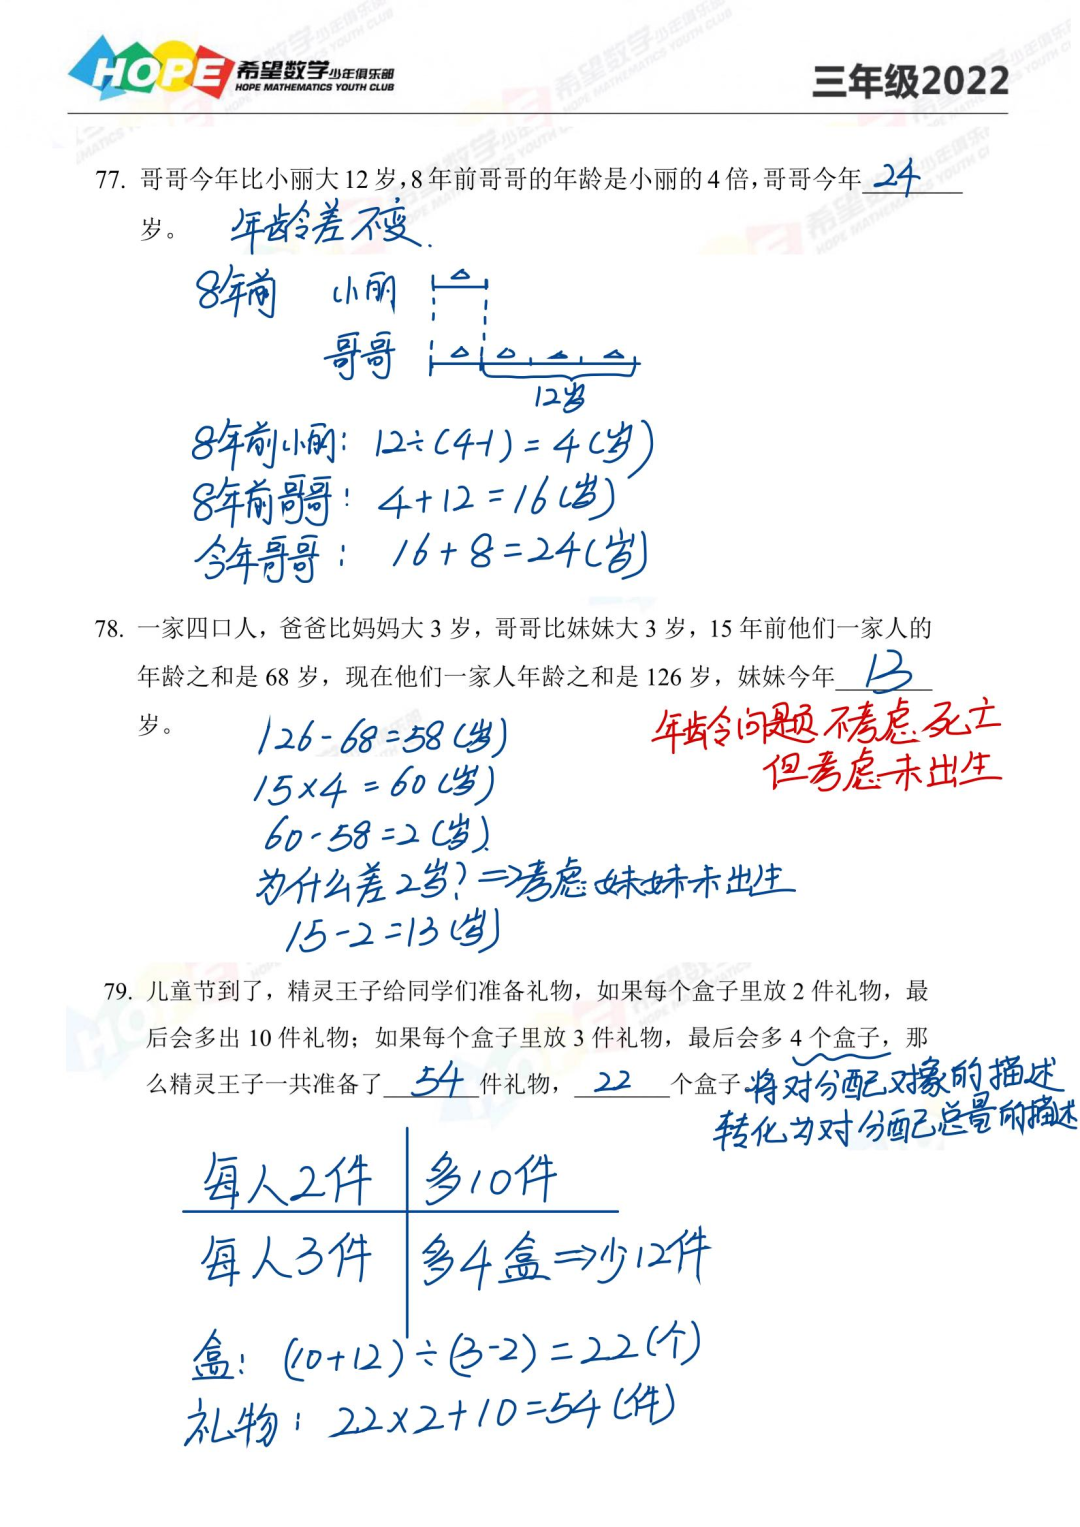 HOPE 希望数学少年俱乐部
HOPE MATHEMATICS YOUTH CLUB
三年级2022
77. 哥哥今年比小丽大12岁,8年前哥哥的年龄是小丽的4倍,哥哥今年 24
岁。 年龄差不变.
8年前 小丽
哥哥
12岁
8年前小丽: 12÷(4-1)=4(岁)
8年前哥哥: 4+12=16(岁)
今年哥哥: 16+8=24(岁)
78. 一家四口人，爸爸比妈妈大 3 岁，哥哥比妹妹大 3 岁，15 年前他们一家人的
年龄之和是 68 岁，现在他们一家人年龄之和是 126 岁，妹妹今年 13
岁。
年龄问题不考虑死亡
但考虑未出生
126-68=58(岁)
15×4=60(岁)
60-58=2(岁)
为什么差2岁?⇒考虑妹妹未出生
15-2=13(岁)
79. 儿童节到了，精灵王子给同学们准备礼物，如果每个盒子里放 2 件礼物，最
后会多出 10 件礼物；如果每个盒子里放 3 件礼物，最后会多 4 个盒子，那
么精灵王子一共准备了 54 件礼物， 22 个盒子.
将对分配对象的描述
转化为对分配总量的描述
每人2件 多10件
每人3件 多4盒⇒少12件
盒: (10+12)÷(3-2)=22(个)
礼物: 22×2+10=54(件)